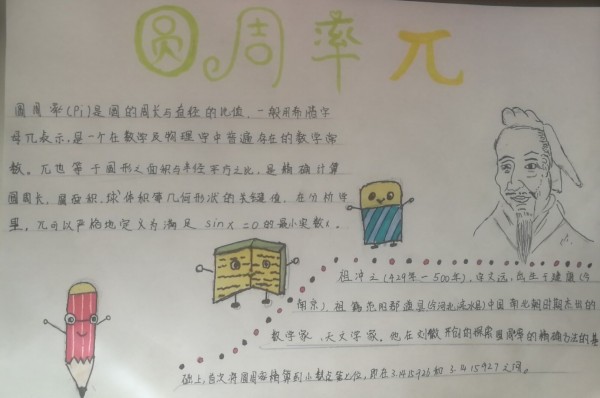 圆周率π
圆周率(Pi)是圆的周长与直径的比值，一般用希腊字
母π表示，是一个在数学及物理学中普遍存在的数学常
数。π也等于圆形之面积与半径平方之比，是精确计算
圆周长、圆面积、球体积等几何形状的关键值，在分析学
里，π可以严格地定义为满足sinx=0的最小实数x。
祖冲之(429年—500年)，字文远，出生于建康(今
南京)，祖籍范阳郡遒县(今河北涞水县)中国南北朝时期杰出的
数学家、天文学家。他在刘徽开创的探索圆周率的精确方法的基
础上，首次将圆周率精算到小数点第七位，即在3.1415926和3.1415927之间。